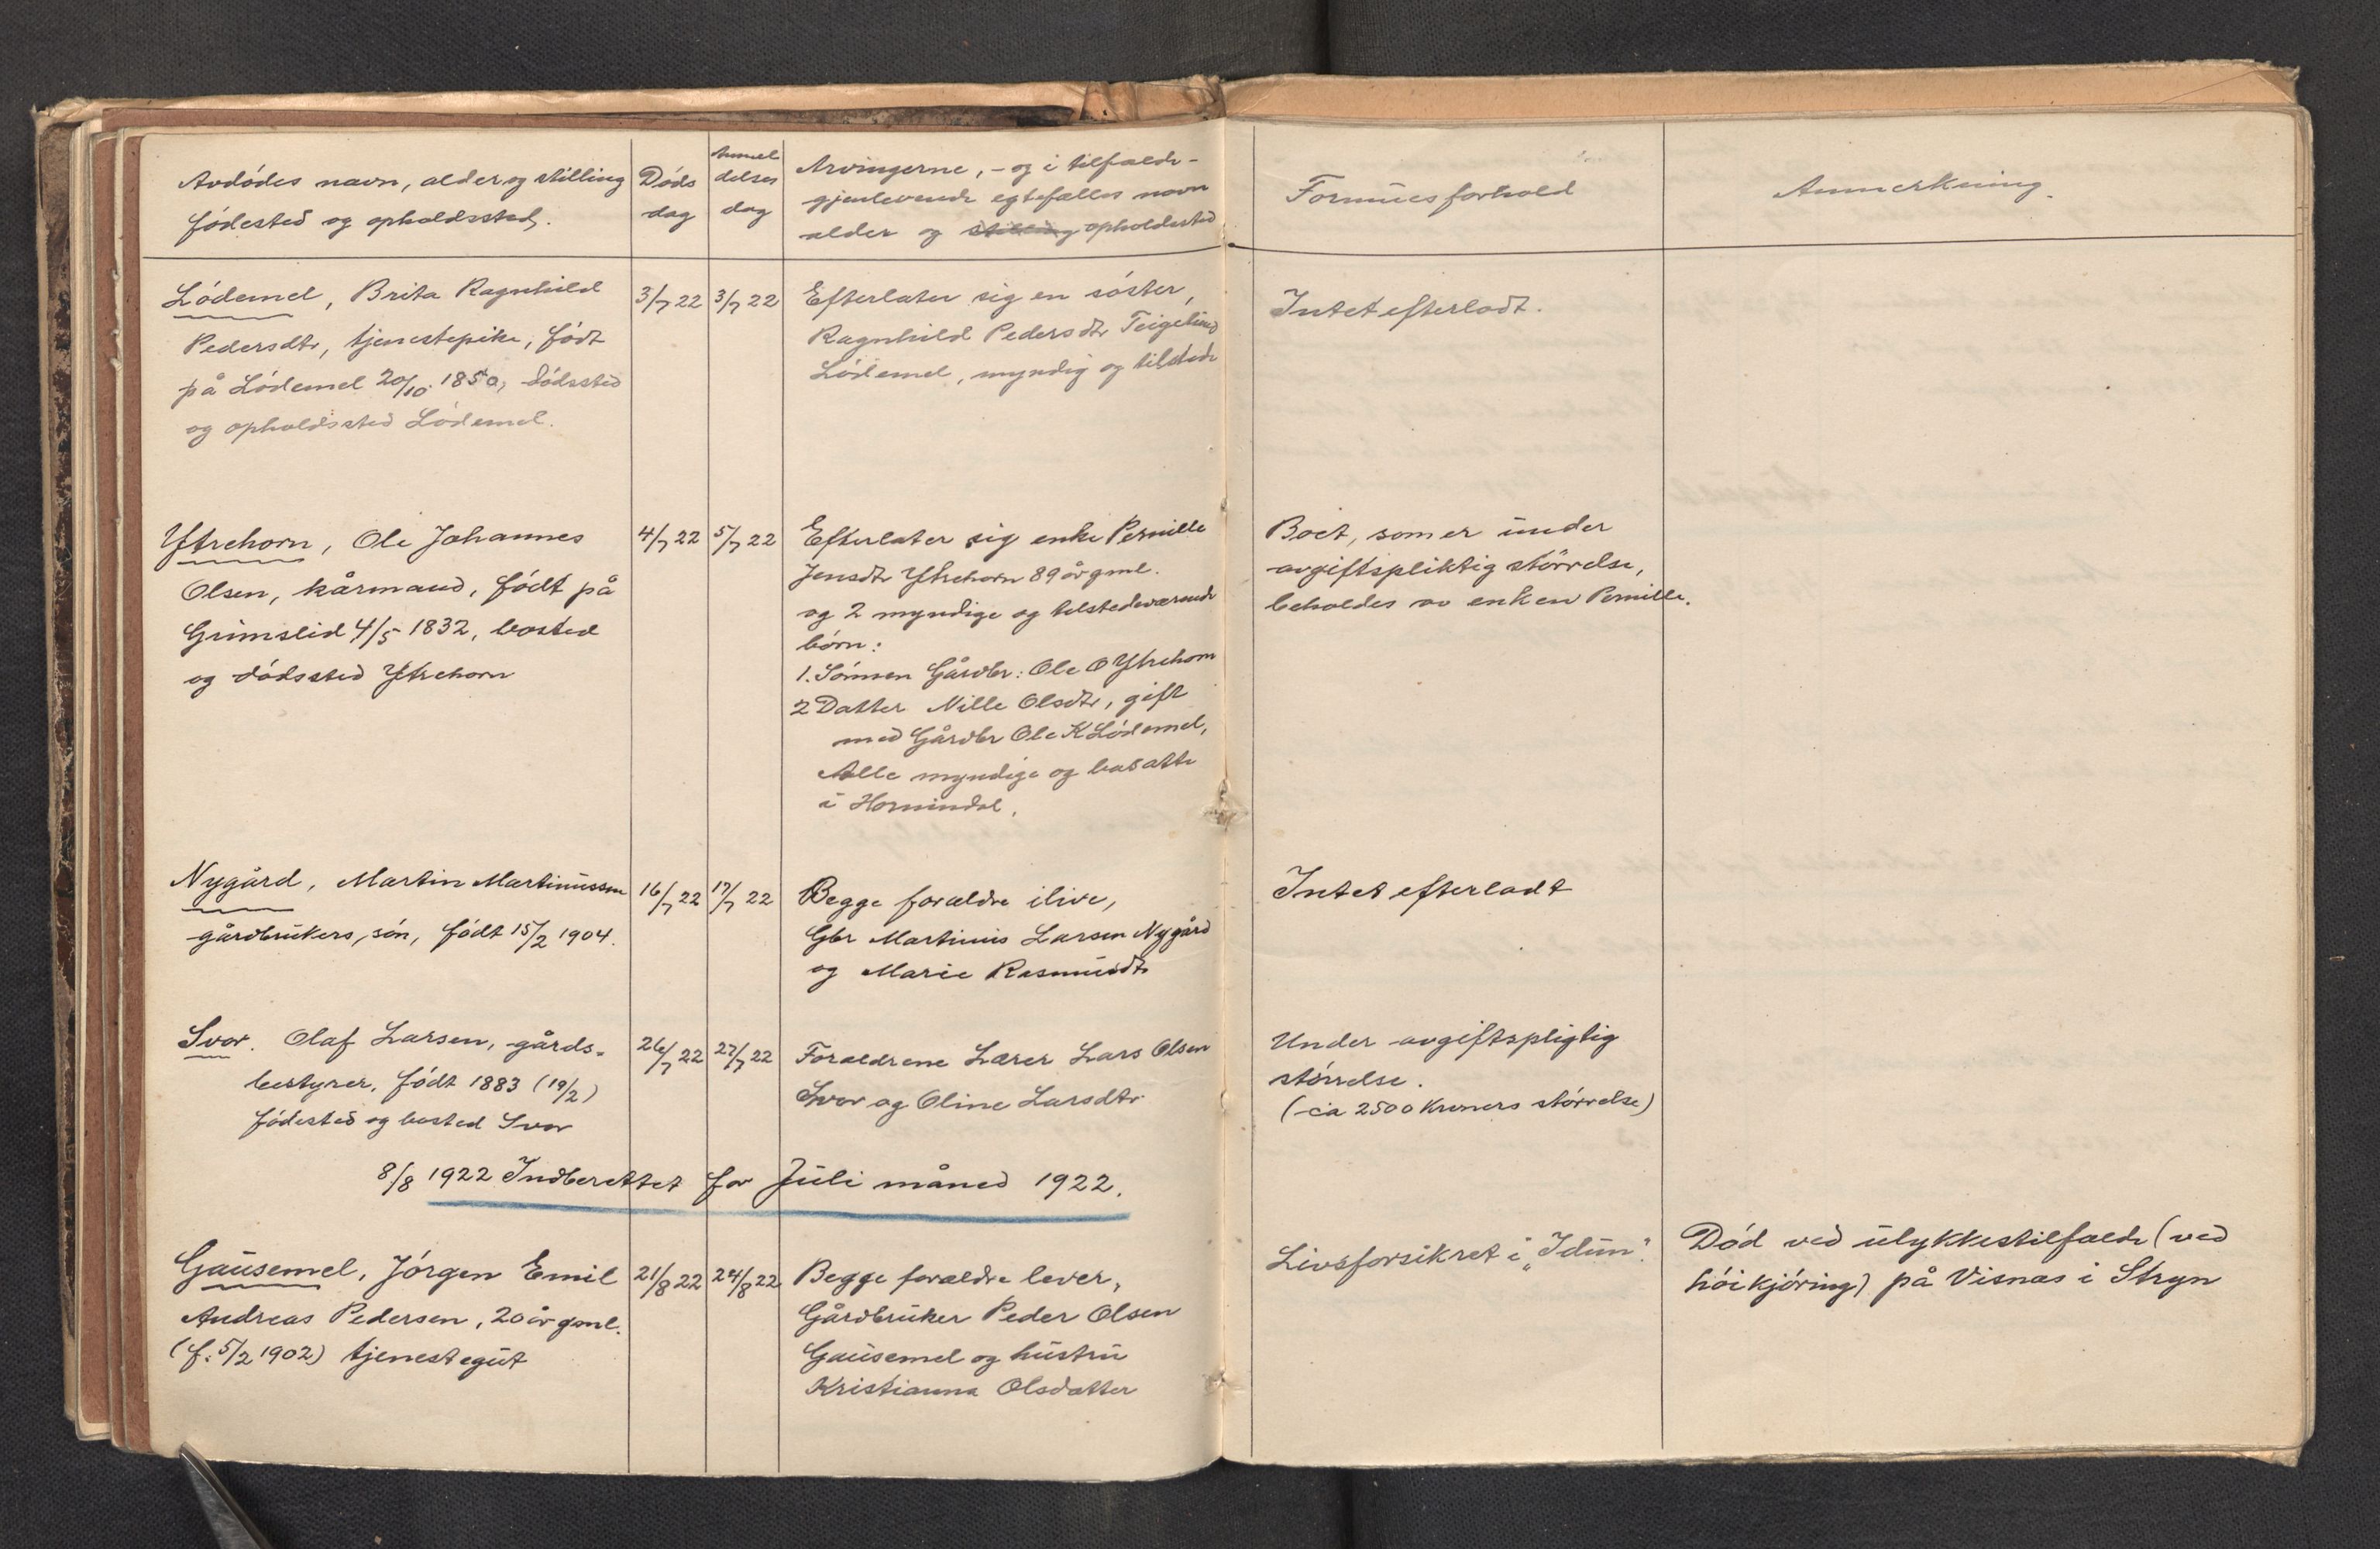 Avdödes navn, alder og stilling
födested og opholdssted.
Döds
dag
Anmel
delses
dag
Arvingerne, - og i tilfælde -
gjenlevende egtefælles navn
alder og stilling opholdssted
Formuesforhold
Anmerkning.
Lödemel, Brita Ragnhild
Pedersdtr, tjenestepike, födt
på Lödemel 20/10 1850, dödssted
og opholdssted Lödemel.
3/7 22
3/7 22
Efterlater sig en söster,
Ragnhild Pedersdtr Teigelund
Lödemel, myndig og tilstede
Intet efterladt.
Ytrehorn, Ole Johannes
Olsen, kårmand, födt på
Grimslid 4/5 1832, bosted
og dödssted Ytrehorn
4/7 22
5/7 22
Efterlater sig enke Pernille
Jensdtr Ytrehorn 89 år gml.
og 2 myndige og tilstedeværende
börn:
1. Sönnen Gårdbr: Ole O Ytrehorn
2 Datter Nille Olsdtr, gift
med Gårdbr Ole K Lödemel,
Alle myndige og bosatte
i Hornindal.
Boet, som er under
avgiftspliktig störrelse,
beholdes av enken Pernille.
Nygård, Martin Martinussen
gårdbrukers, sön, födt 15/2 1904.
16/7 22
17/7 22
Begge forældre ilive,
Gbr Martinus Larsen Nygård
og Marie Rasmusdtr
Intet efterladt
Svor. Olaf Larsen, gårds-
bestyrer, födt 1883 (19/2)
födested og bosted Svor
26/7 22
27/7 22
Forældrene Lærer Lars Olsen
Svor og Oline Larsdtr
Under avgiftspligtig
störrelse.
(ca 2500 Kroners störrelse)
8/8 1922 Indberettet for Juli måned 1922.
Gausemel, Jörgen Emil
Andreas Pedersen, 20 år gml.
(f: 5/2 1902) tjenestegut
21/8 22
24/8 22
Begge forældre lever,
Gårdbruker Peder Olsen
Gausemel og hustru
Kristianna Olsdatter
Livsforsikret i „Idun".
Död ved ulykkestilfælde (ved
höikjöring) på Visnæs i Stryn